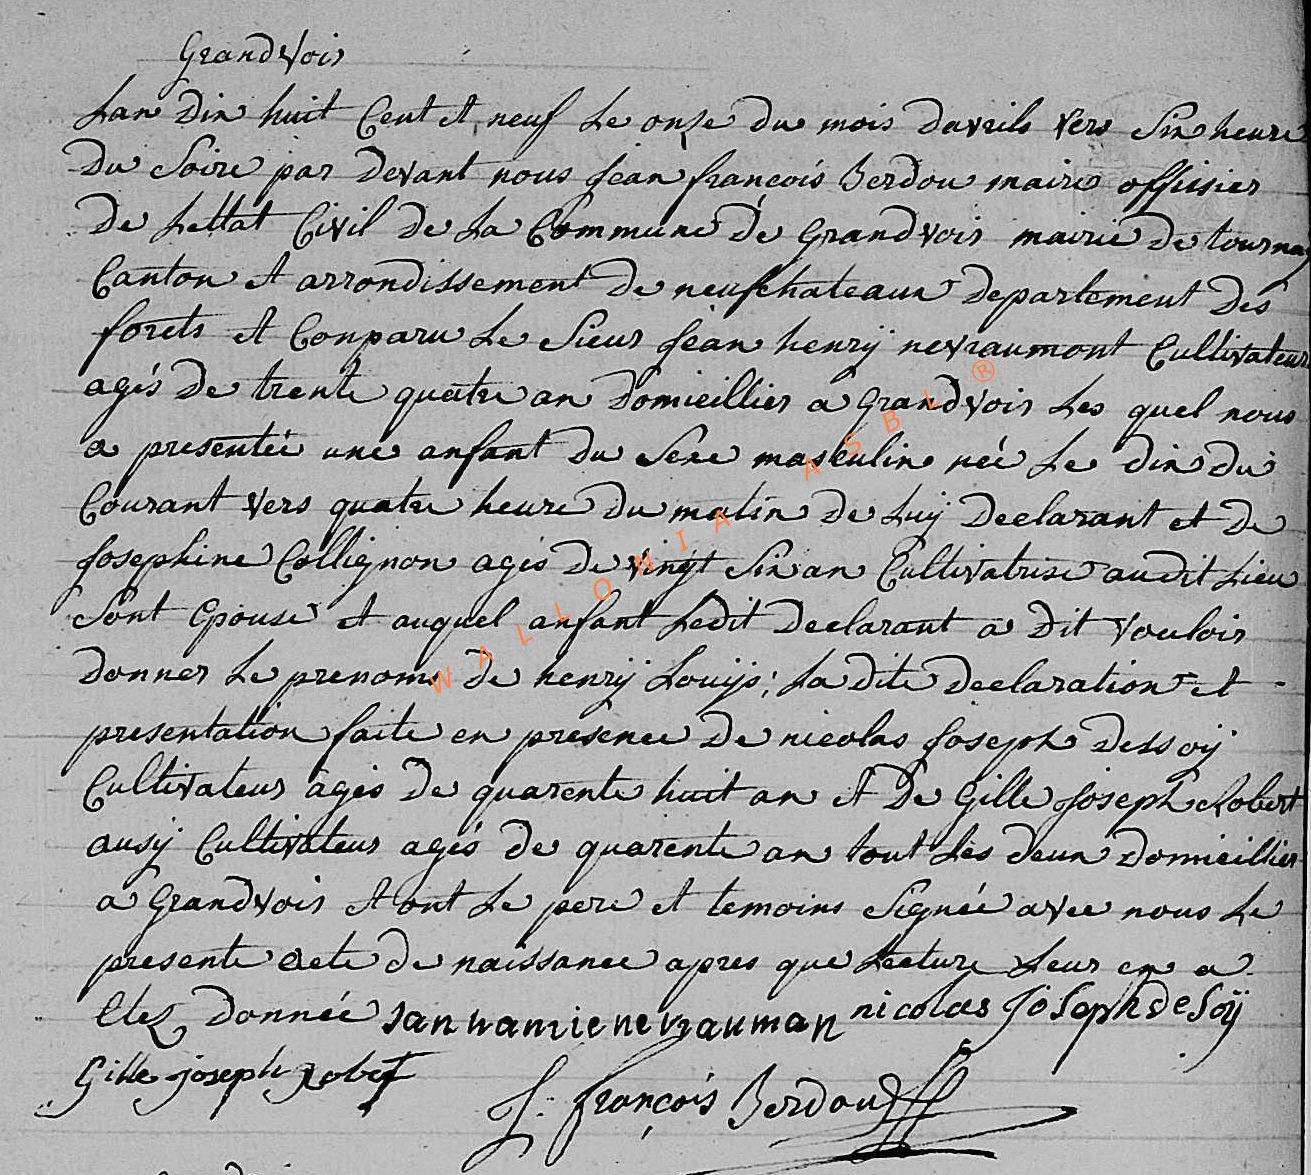 Grandvois
Lan dix huit Cent et neuf Le onse du mois davrils vers Six heure
Du Soire par devant nous jean françois Berdou mairie offisier
De Lettat Civil de La Commune de Grandvois mairie de tournay
Canton et arrondissement de neufchateaux departement des
forets et Conparu Le Sieur jean henrÿ nevraumont Cultivateur
agés de trente quatre an domicillier a Grandvois Les quel nous
a presentée une anfant du Sexe masculin née Le dix du
Courant vers quatre heure du matin de Luÿ declarant et de
josephine Collignon agés de vingt Six an Cultivatrise audit Lieu
Sont Epouse et auquel anfant Ledit declarant a dit vouloir
donner Le prenoms de henrÿ Louÿs; La dite declaration et -
presentation faite en presence de nicolas joseph dessoÿ
Cultivateur agés de quarente huit an et de Gille joseph Robert
ausÿ Cultivateur agés de quarente an tout Les deux domicillier
a Grandvois et ont Le pere et temoins Signée avec nous Le
presente acte de naissance apres que Lecture Leur en a
Etez donnée san wanrie nevrauman nicolas josaph de Soÿ
Gille joseph Robet
J: françois Berdou
WALLONIA ASBL ®